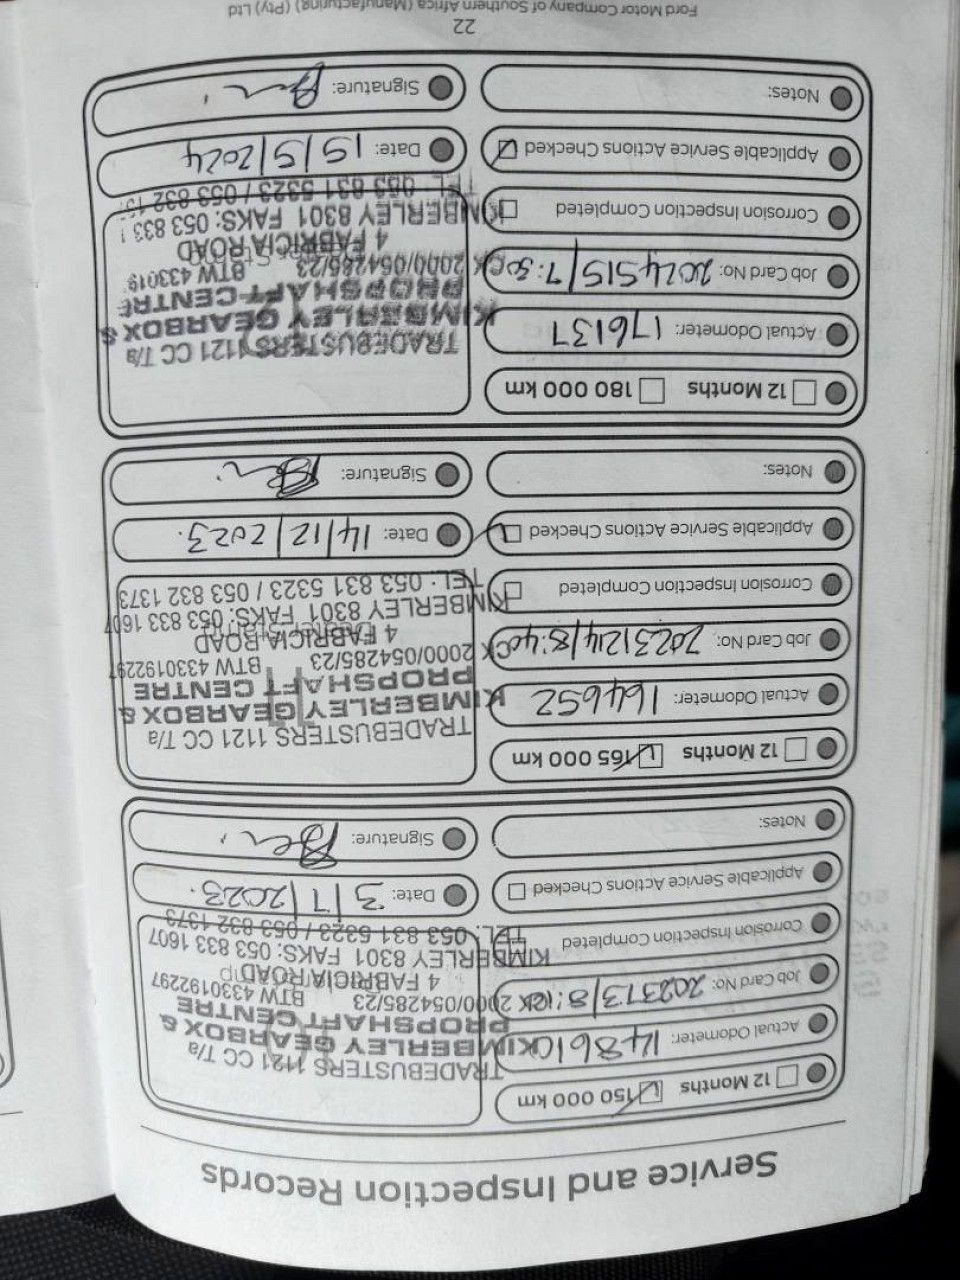 Service and Inspection Records
12 Months 150 000 km
Actual Odometer: 148610
Job Card No: 202373/8:10
Corrosion Inspection Completed
Applicable Service Actions Checked
Notes:
TRADEBUSTERS 1121 CC T/a
KIMBERLEY GEARBOX &
PROPSHAFT CENTRE
CK 2000/054285/23 BTW 4330192297
4 FABRICIA ROAD
KIMBERLEY 8301 FAKS: 053 833 1607
TEL: 053 831 5323 / 053 832 1373
Date: 3/7/2023.
Signature:
12 Months 165 000 km
Actual Odometer: 164652
Job Card No: 20231214/8:40
Corrosion Inspection Completed
Applicable Service Actions Checked
Notes:
TRADEBUSTERS 1121 CC T/a
KIMBERLEY GEARBOX &
PROPSHAFT CENTRE
CK 2000/054285/23 BTW 4330192297
4 FABRICIA ROAD
KIMBERLEY 8301 FAKS: 053 833 1607
TEL: 053 831 5323 / 053 832 1373
Date: 14/12/2023.
Signature:
12 Months 180 000 km
Actual Odometer: 176137
Job Card No: 2024515/7:30
Corrosion Inspection Completed
Applicable Service Actions Checked
Notes:
TRADEBUSTERS 1121 CC T/a
KIMBERLEY GEARBOX &
PROPSHAFT CENTRE
CK 2000/054285/23 BTW 433019
4 FABRICIA ROAD
KIMBERLEY 8301 FAKS: 053 833 1
TEL: 053 831 5323 / 053 832 137
Date: 15/5/2024
Signature:
22
Ford Motor Company of Southern Africa (Manufacturing) (Pty) Ltd